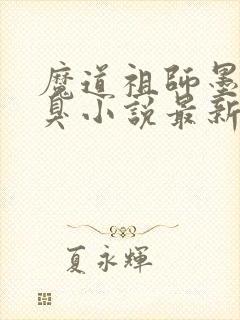 魔道祖師墨
臭小說最新
夏永輝